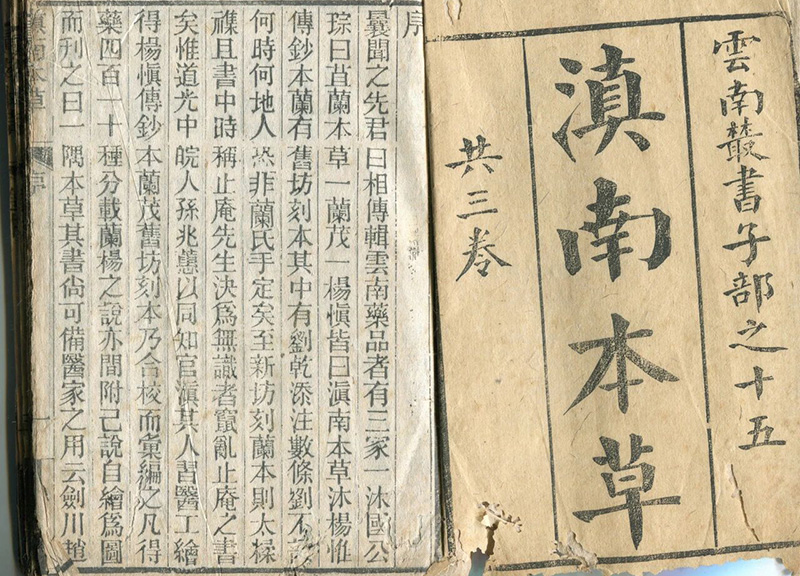 雲南叢書子部之十五
滇南本草
共三卷
序
曩聞之先君曰相傳輯雲南藥品者有三家一沐國公
琮曰苴蘭本草一蘭茂一楊慎皆曰滇南本草沐楊惟
傳鈔本蘭有舊坊刻本其中有劉乾添注數條劉不
何時何地人恐非蘭氏手定矣至新坊刻蘭本則太
襍且書中時稱止庵先生決爲無識者竄亂止庵之書
矣惟道光中皖人孫兆蕙以同知官滇其人習醫工繪
得楊慎傳鈔本蘭茂舊坊刻本乃合校而彙編之凡得
藥四百一十種分載蘭楊之說亦間附己說自繪爲圖
而刊之曰一隅本草其書尚可備醫家之用云劍川趙
滇南本草 序 一